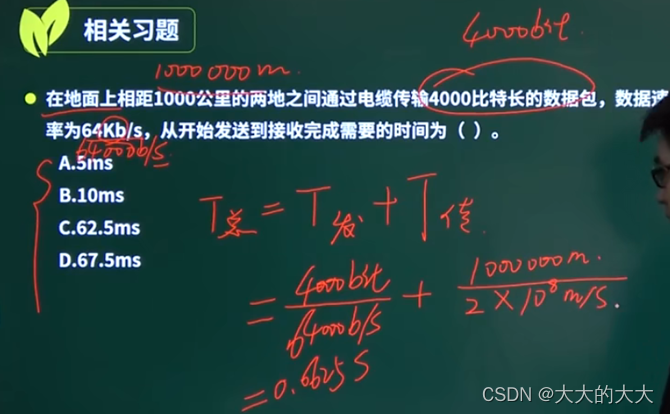 相关习题
4000bit.
1000 000m.
在地面上相距1000公里的两地之间通过电缆传输4000比特长的数据包，数据速
率为64Kb/s，从开始发送到接收完成需要的时间为（ ）。
64000b/s.
A.5ms
B.10ms
C.62.5ms
D.67.5ms
T总 = T发 + T传
= 4000bit / 64000b/s + 1000 000m. / 2×10⁸m/s.
= 0.0625 s
CSDN @大大的大大